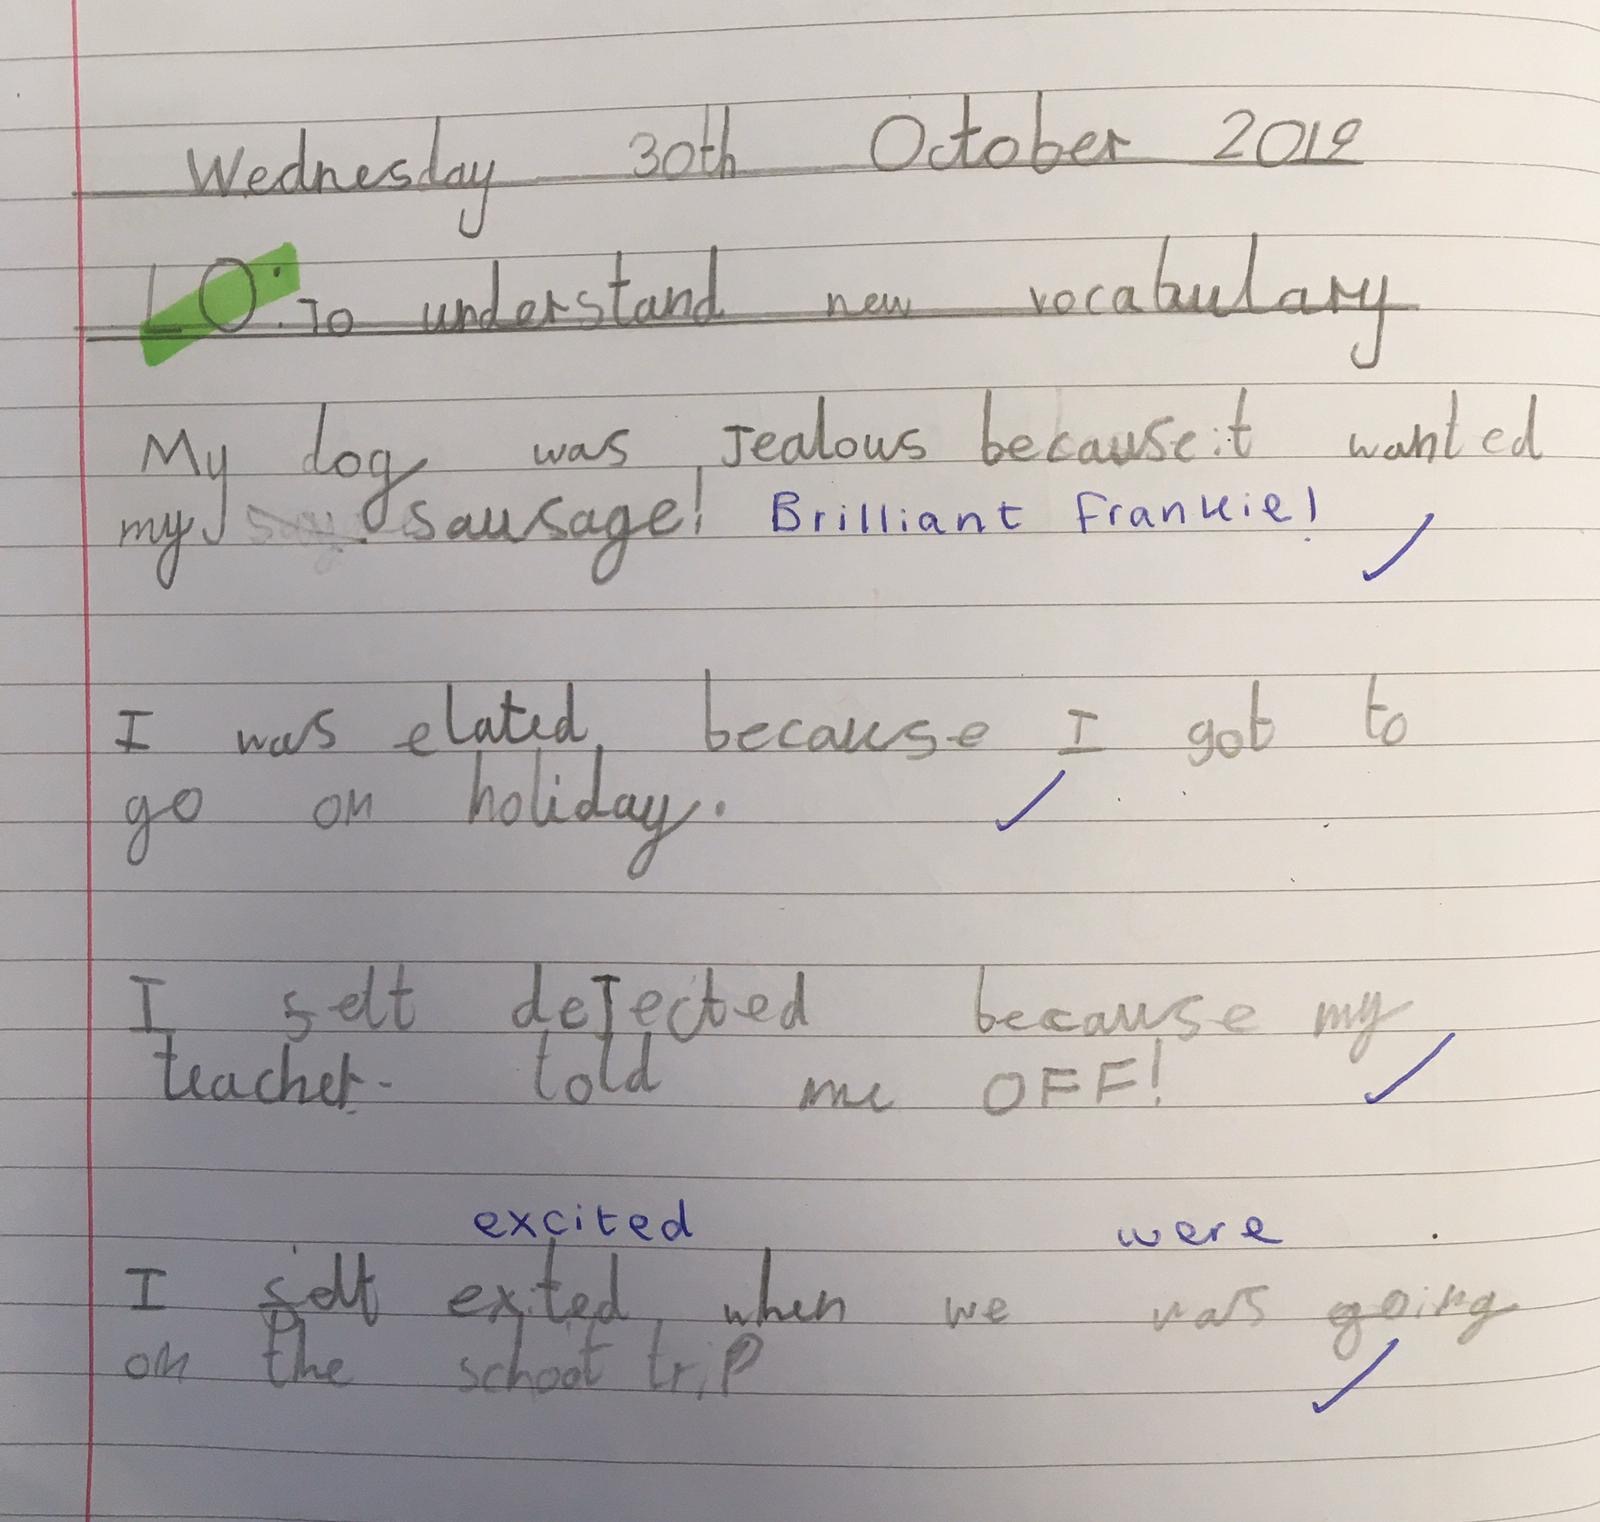 Wednesday 30th October 2019
LO: To understand new vocabulary
My dog was Jealous because it wanted
my sausage! Brilliant Frankie!
I was elated because I got to
go on holiday.
I felt deJected because my
teacher told me OFF!
excited were
I felt exited when we was going
on the school trip